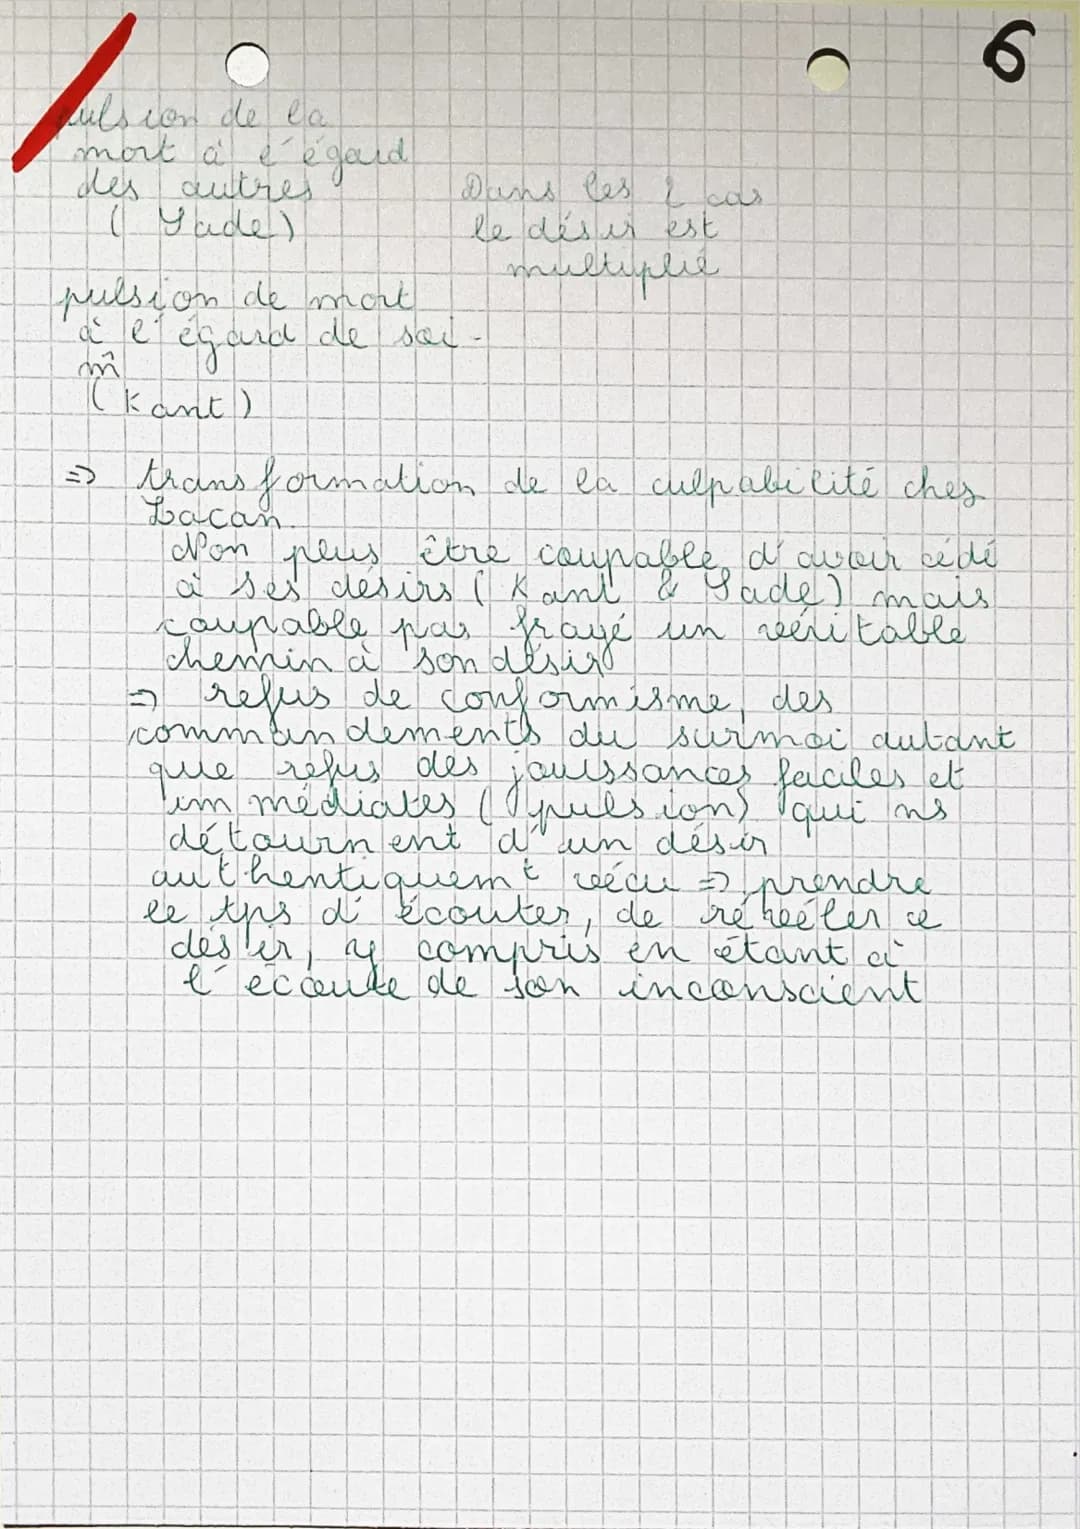 6
pulsion de la
mort à l'égard
des autres
(Sade)
Dans les 2 cas
le désir est
multiplié
pulsion de mort
à l'égard de soi-
m̂
(Kant)
=> transformation de la culpabilité chez
Lacan.
Non plus être coupable d'avoir cédé
à ses désirs (Kant & Sade) mais
coupable pas frayé un véritable
chemin à son désir
=> refus de conformisme, des
commandements du surmoi autant
que refus des jouissances faciles et
immédiates (pulsion) qui ns
détournent d'un désir
authentiquemt vécu => prendre
le tps d'écouter, de révéler ce
désir, y compris en étant à
l'écoute de son inconscient